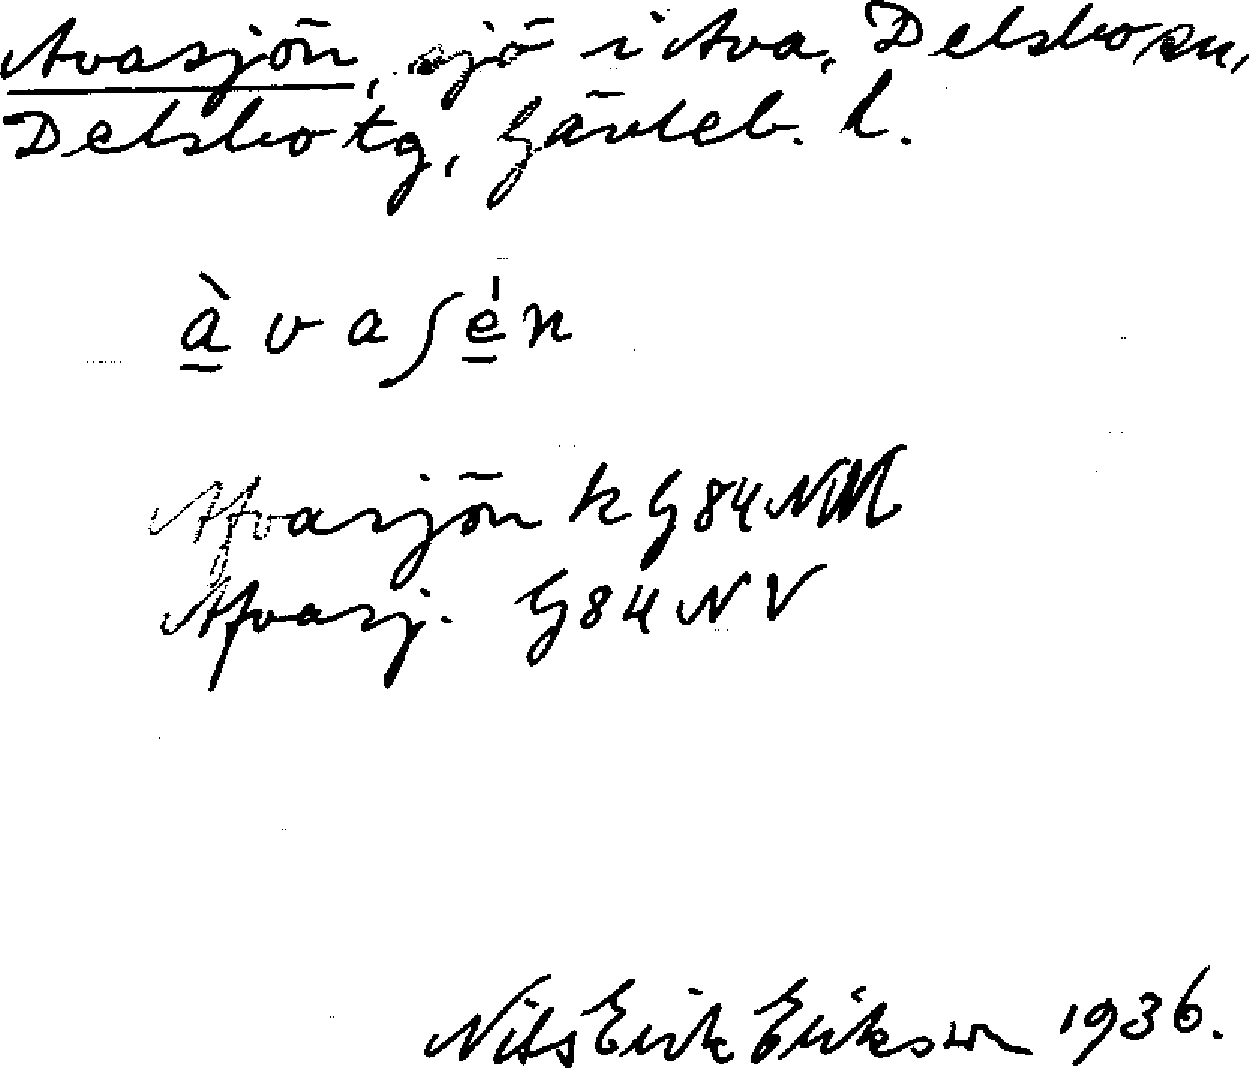 Avasjön, sjö i Ava, Delsbo sn,
Delsbo tg, Gävleb. l.
àvaʃén
Afvasjön k G84NV
Afvasj. G84NV
Nils Erik Erikson 1936.